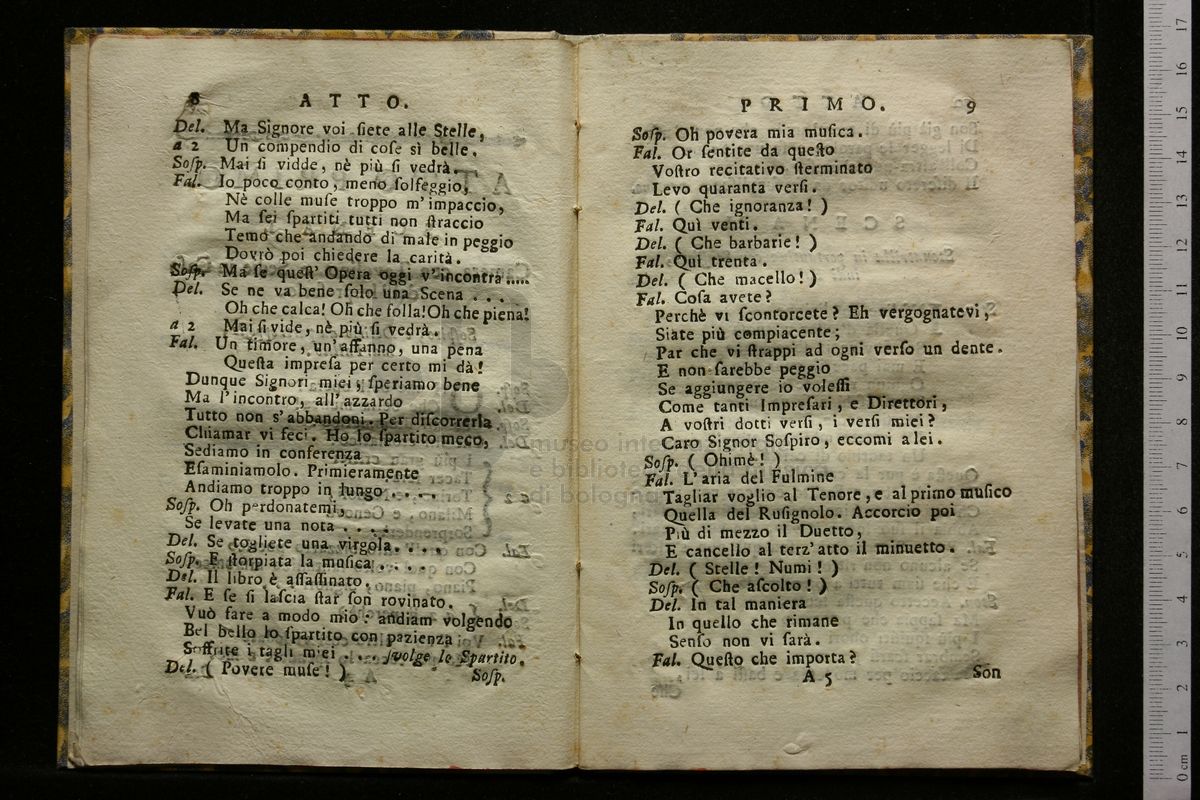 8 ATTO.
Del. Ma Signore voi ſiete alle Stelle,
a 2 Un compendio di coſe sì belle.
Soſp. Mai ſi vidde, nè più ſi vedrà.
Fal. Io poco conto, meno ſolfeggio,
Nè colle muſe troppo m'impaccio,
Ma ſei ſpartiti tutti non ſtraccio
Temo che andando di male in peggio
Dovrò poi chiedere la carità.
Soſp. Ma ſe queſt' Opera oggi v'incontra.....
Del. Se ne va bene ſolo una Scena . . .
Oh che calca! Oh che folla! Oh che piena!
a 2 Mai ſi vide, nè più ſi vedrà.
Fal. Un timore, un'affanno, una pena
Queſta impreſa per certo mi dà!
Dunque Signori miei, ſperiamo bene
Ma l'incontro, all'azzardo
Tutto non s'abbandoni. Per diſcorrerla
Chiamar vi feci. Ho lo ſpartito meco,
Sediamo in conferenza
Eſaminiamolo. Primieramente
Andiamo troppo in lungo . . . .
Soſp. Oh perdonatemi,
Se levate una nota . . . .
Del. Se togliete una virgola. . . .
Soſp. E ſtorpiata la muſica . . . .
Del. Il libro è aſſaſſinato.
Fal. E ſe ſi laſcia ſtar ſon rovinato.
Vuò fare a modo mio: andiam volgendo
Bel bello lo ſpartito con pazienza
Soffrite i tagli miei . . . . ſvolge lo Spartito.
Del. ( Povere muſe! )
Soſp.
PRIMO. 9
Soſp. Oh povera mia muſica.
Fal. Or ſentite da queſto
Voſtro recitativo ſterminato
Levo quaranta verſi.
Del. ( Che ignoranza! )
Fal. Quì venti.
Del. ( Che barbarie! )
Fal. Quì trenta.
Del. ( Che macello! )
Fal. Coſa avete?
Perchè vi ſcontorcete? Eh vergognatevi,
Siate più compiacente;
Par che vi ſtrappi ad ogni verſo un dente.
E non ſarebbe peggio
Se aggiungere io voleſſi
Come tanti Impreſari, e Direttori,
A voſtri dotti verſi, i verſi miei?
Caro Signor Soſpiro, eccomi a lei.
Soſp. ( Ohimè! )
Fal. L'aria del Fulmine
Tagliar voglio al Tenore, e al primo muſico
Quella del Ruſignolo. Accorcio poi
Più di mezzo il Duetto,
E cancello al terz'atto il minuetto.
Del. ( Stelle! Numi! )
Soſp. ( Che aſcolto! )
Del. In tal maniera
In quello che rimane
Senſo non vi ſarà.
Fal. Queſto che importa?
A 5 Son